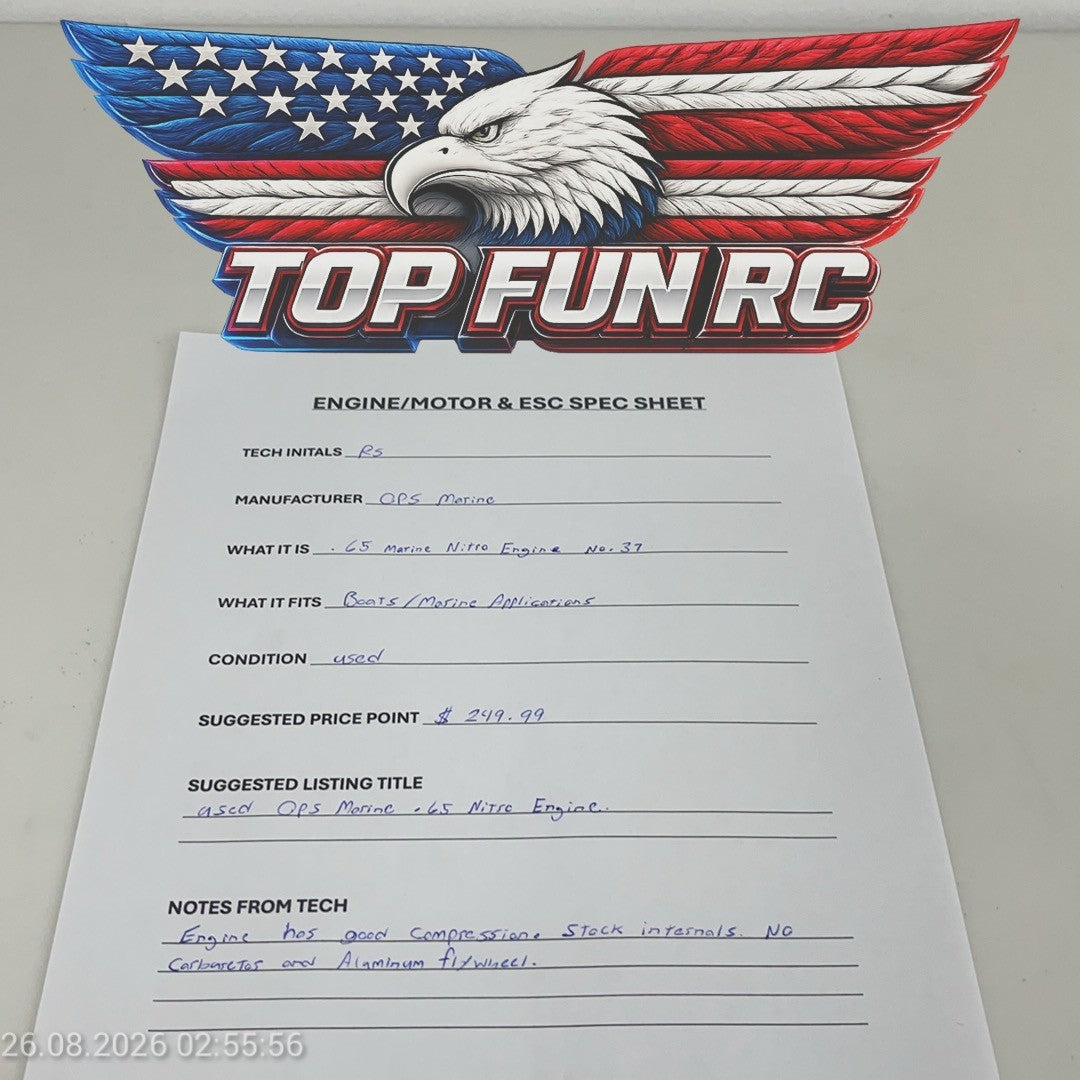 TOP FUN RC
ENGINE/MOTOR & ESC SPEC SHEET
TECH INITALS RS
MANUFACTURER OPS Marine
WHAT IT IS .65 Marine Nitro Engine No. 37
WHAT IT FITS Boats/Marine Applications
CONDITION used
SUGGESTED PRICE POINT $ 249.99
SUGGESTED LISTING TITLE
used OPS Marine .65 Nitro Engine.
NOTES FROM TECH
Engine has good compression. Stock internals. No
Carburetor and Aluminum flywheel.
26.08.2026 02:55:56